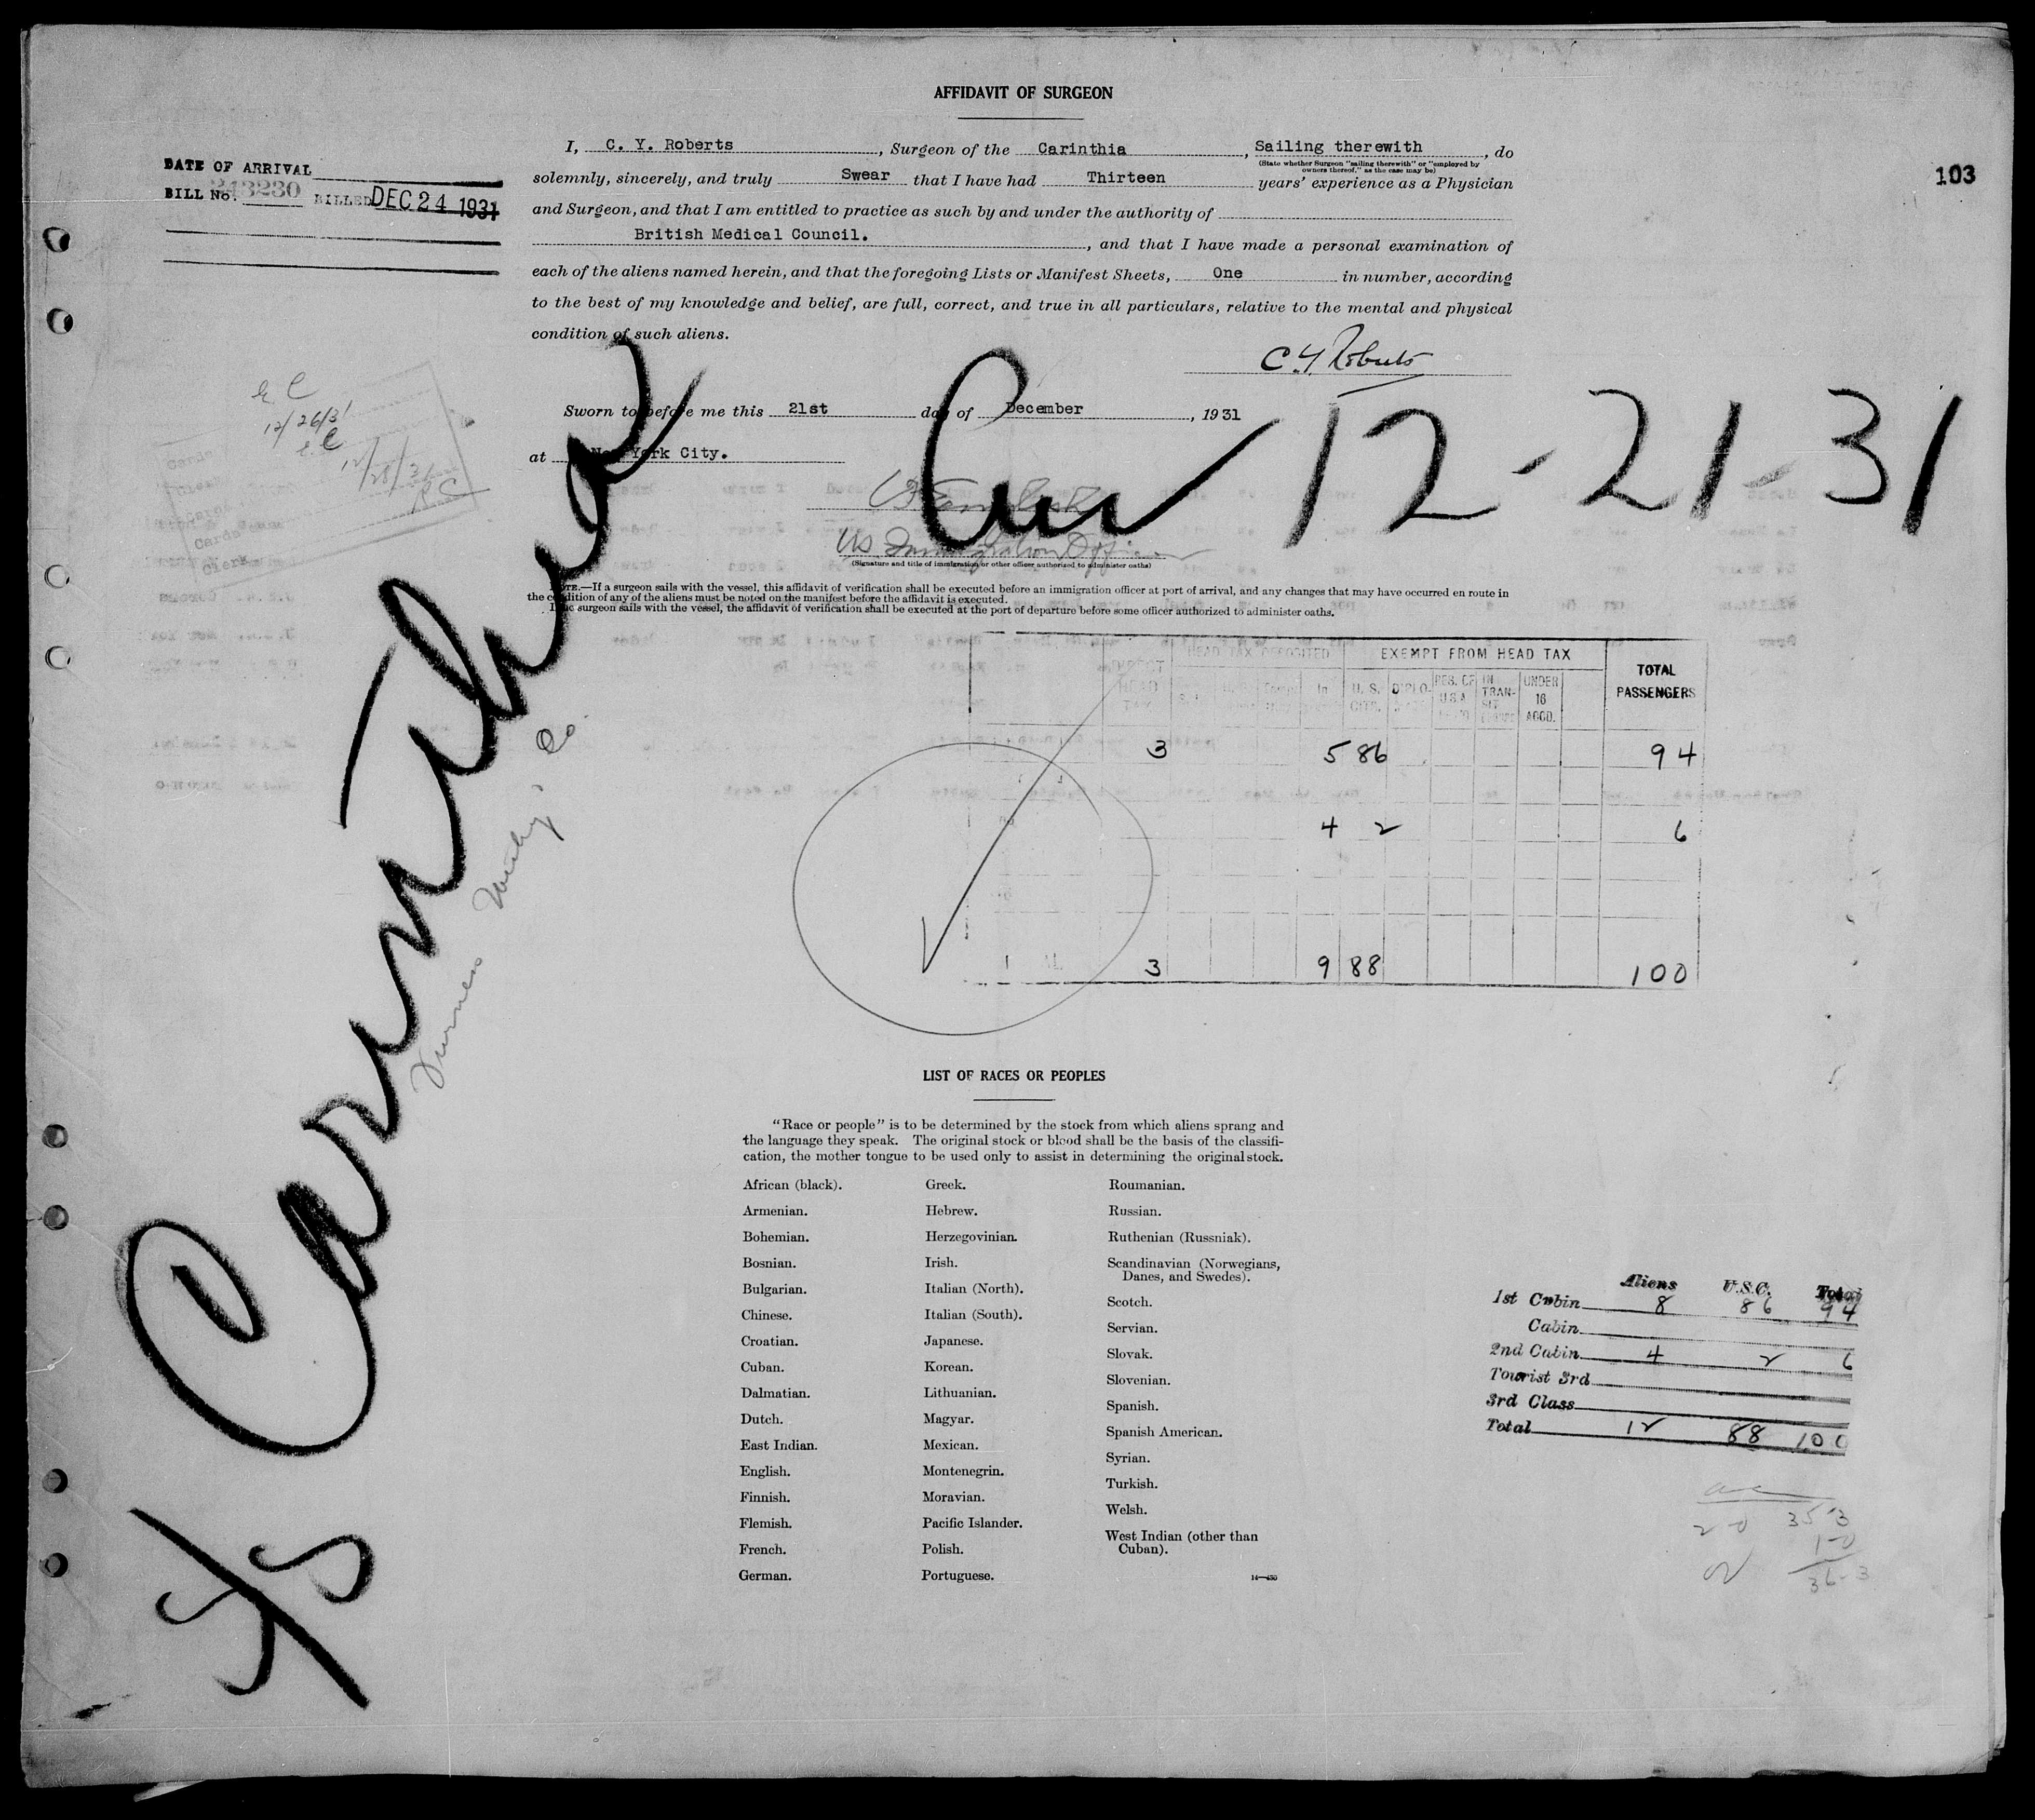 AFFIDAVIT OF SURGEON
103
DATE OF ARRIVAL
BILL No. 243230 BILLED DEC 24 1931
I, C. Y. Roberts, Surgeon of the Carinthia, Sailing therewith, do
(State whether Surgeon "sailing therewith" or "employed by
owners thereof," as the case may be)
solemnly, sincerely, and truly Swear that I have had Thirteen years' experience as a Physician
and Surgeon, and that I am entitled to practice as such by and under the authority of
British Medical Council., and that I have made a personal examination of
each of the aliens named herein, and that the foregoing Lists or Manifest Sheets, One in number, according
to the best of my knowledge and belief, are full, correct, and true in all particulars, relative to the mental and physical
condition of such aliens.
C. Y. Roberts
Sworn to before me this 21st day of December, 1931
at New York City.
12-21-31
12/26/31
12/28/31
Cards
Clerk
US Immigration Officer
(Signature and title of immigration or other officer authorized to administer oaths)
NOTE.—If a surgeon sails with the vessel, this affidavit of verification shall be executed before an immigration officer at port of arrival, and any changes that may have occurred en route in
the condition of any of the aliens must be noted on the manifest before the affidavit is executed.
If no surgeon sails with the vessel, the affidavit of verification shall be executed at the port of departure before some officer authorized to administer oaths.
S/S Carinthia
Furness Withy & Co.
HEAD TAX DEPOSITED EXEMPT FROM HEAD TAX TOTAL PASSENGERS
HEAD TAX U. S. CITS. DIPLO- RES. OF U.S.A. IN TRAN- SIT UNDER 16 ACCD.
3 5 86 94
4 2 6
3 9 88 100
LIST OF RACES OR PEOPLES
"Race or people" is to be determined by the stock from which aliens sprang and
the language they speak. The original stock or blood shall be the basis of the classifi-
cation, the mother tongue to be used only to assist in determining the original stock.
African (black).
Armenian.
Bohemian.
Bosnian.
Bulgarian.
Chinese.
Croatian.
Cuban.
Dalmatian.
Dutch.
East Indian.
English.
Finnish.
Flemish.
French.
German.
Greek.
Hebrew.
Herzegovinian.
Irish.
Italian (North).
Italian (South).
Japanese.
Korean.
Lithuanian.
Magyar.
Mexican.
Montenegrin.
Moravian.
Pacific Islander.
Polish.
Portuguese.
Roumanian.
Russian.
Ruthenian (Russniak).
Scandinavian (Norwegians,
Danes, and Swedes).
Scotch.
Servian.
Slovak.
Slovenian.
Spanish.
Spanish American.
Syrian.
Turkish.
Welsh.
West Indian (other than
Cuban).
Aliens U.S.C. Total
1st Cabin 8 86 94
Cabin
2nd Cabin 4 2 6
Tourist 3rd
3rd Class
Total 12 88 100
2-0 35-3
1-0
36-3